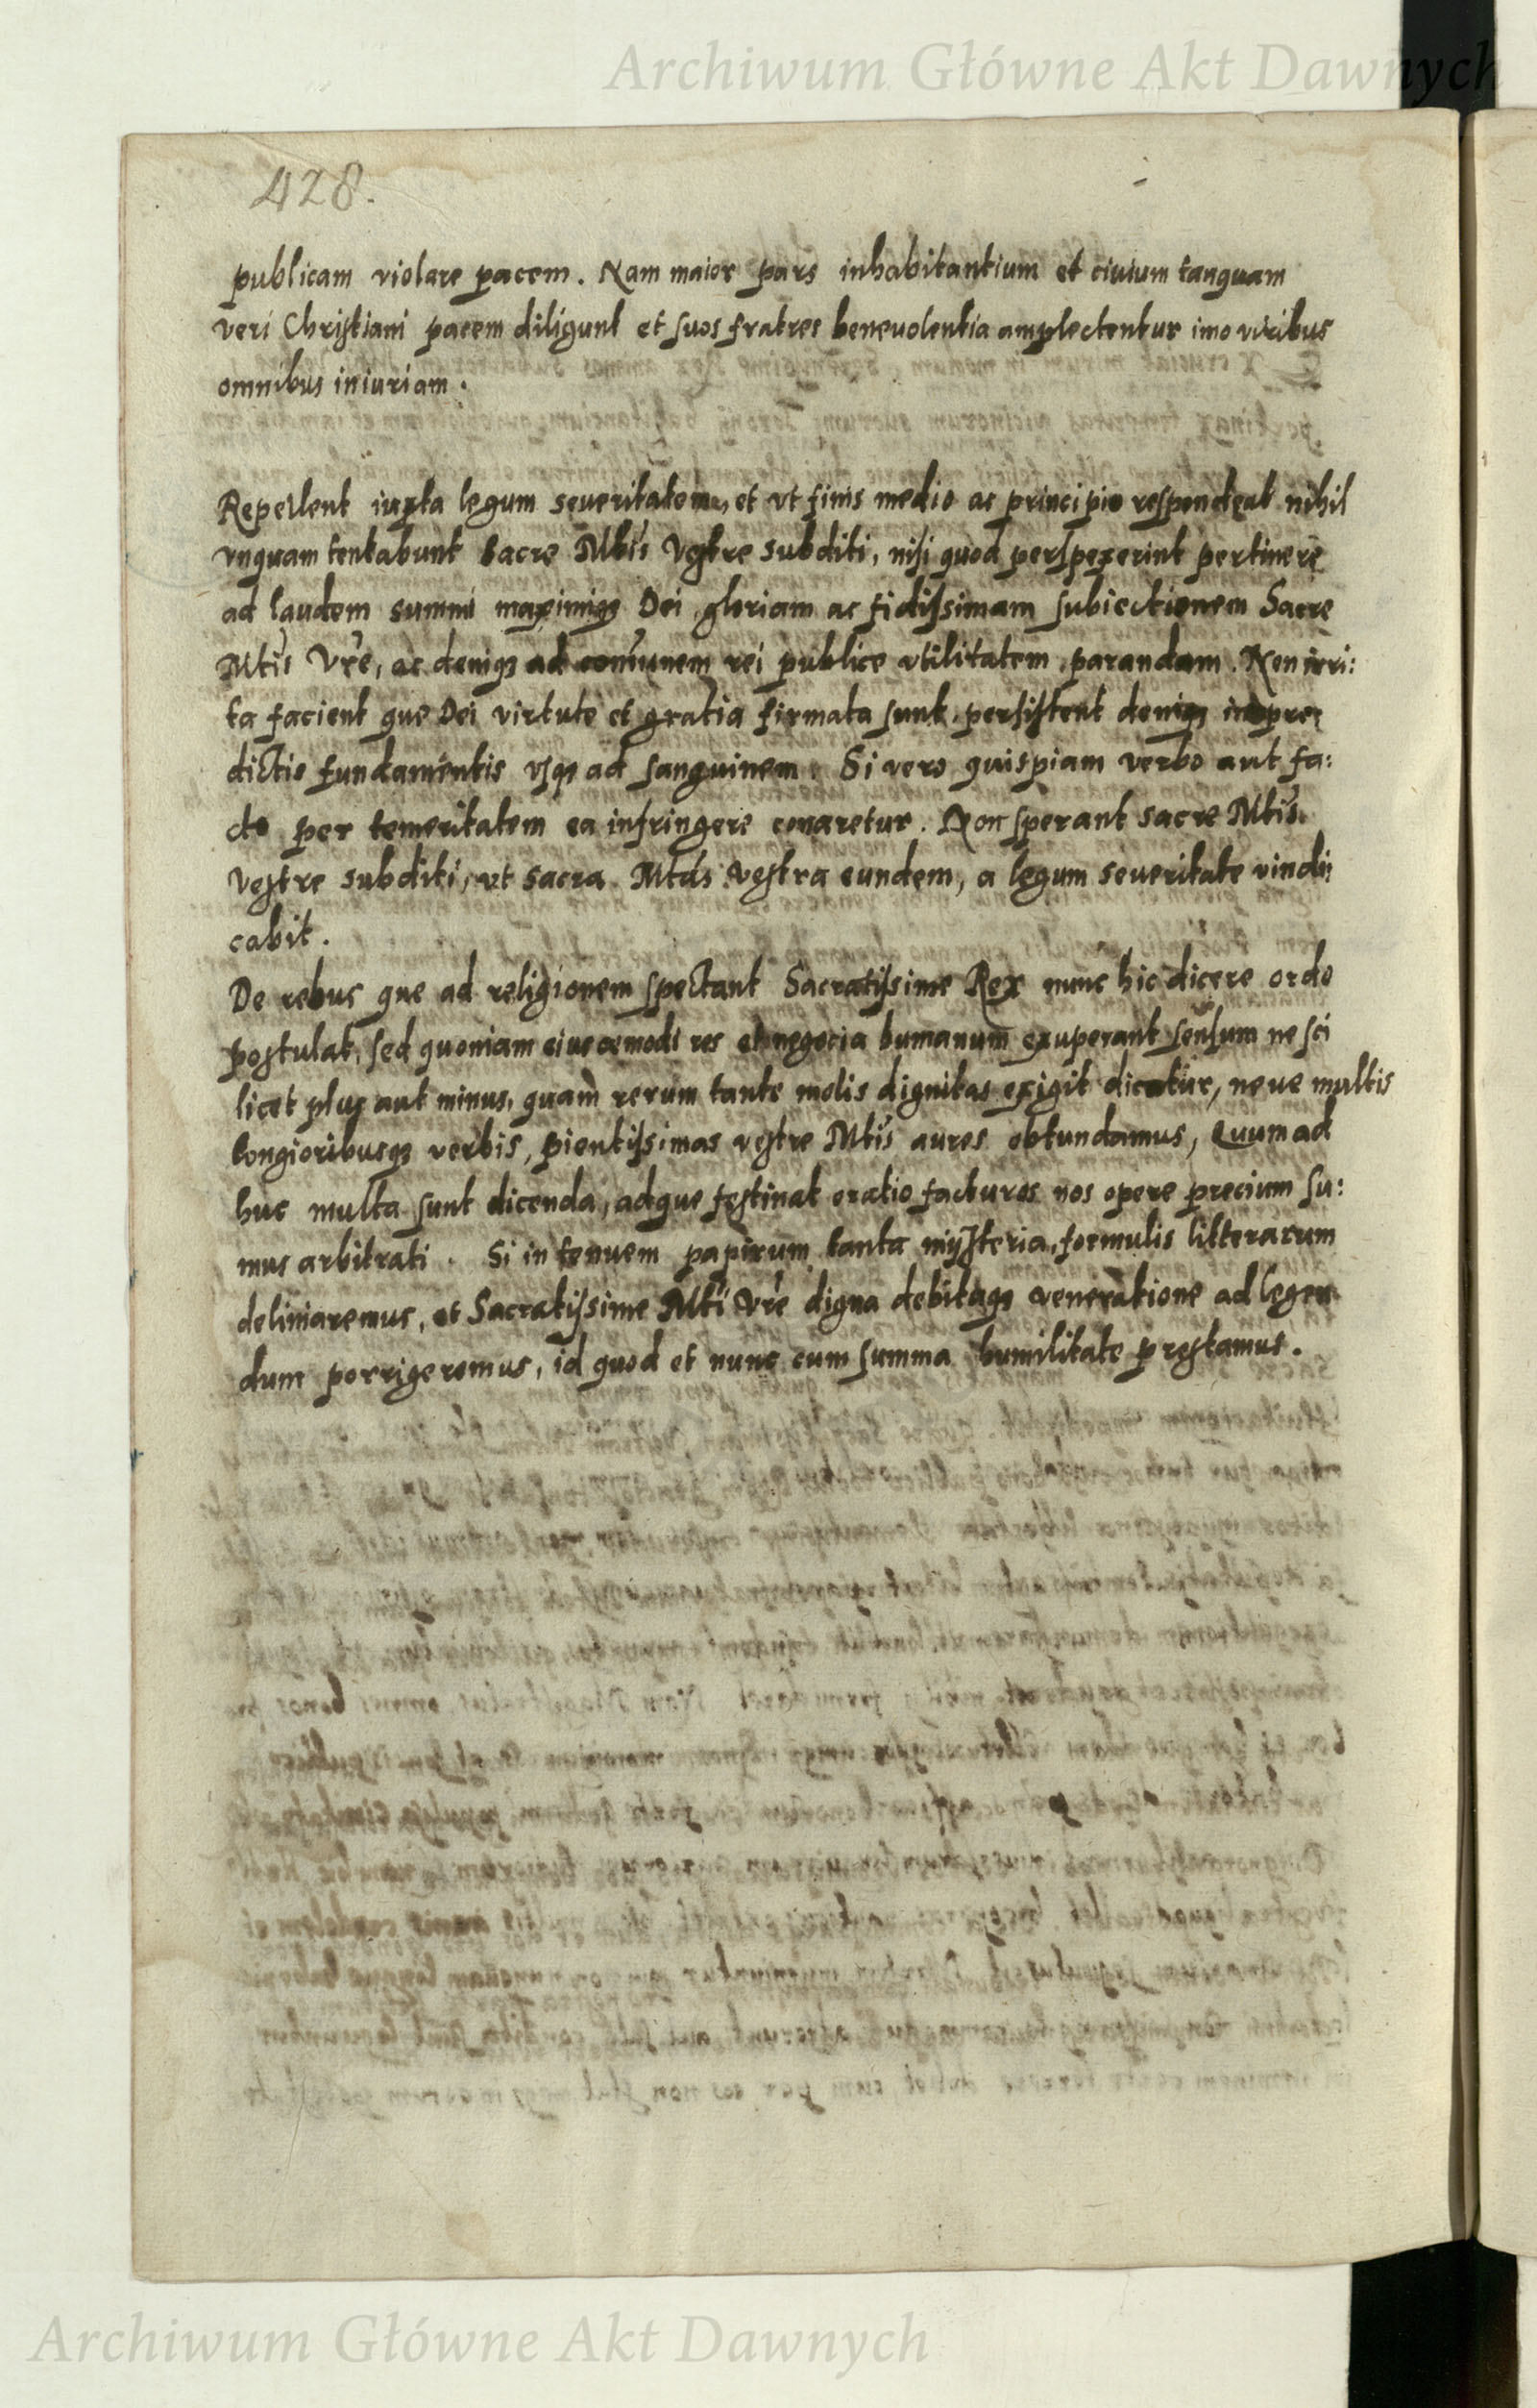 Archiwum Główne Akt Dawnych
428.
publicam violare pacem. Nam maior pars inhabitantium et ciuium tanquam
veri Christiani pacem diligunt et suos fratres beneuolentia amplectentur imo viribus
omnibus iniuriam.
Repellent iuxta legum seueritatem, et vt finis medio ac principio respondeat nihil
vnquam tentabunt Sacre Mtis Vestre subditi, nisi quod perspexerint pertinere
ad laudem summi maximiqꝫ Dei gloriam ac fidissimam subiectionem Sacre
Mtis Vre, ac deniqꝫ ad comunem rei publice vtilitatem parandam. Non irri:
ta facient que Dei virtute et gratia firmata sunt, persistent deniqꝫ in pre
dictis fundamentis vsqꝫ ad sanguinem. Si vero quispiam verbo aut fa:
cto per temeritatem ea infringere conaretur. Non sperant sacre Mtis
Vestre subditi, ut sacra Mtas Vestra eundem, a legum seueritate vindi
cabit.
De rebus que ad religionem spectant Sacratissime Rex nunc hic dicere ordo
postulat, sed quoniam eiuscemodi res et negocia humanum exuperant sensum ne sci
licet plus aut minus, quam rerum tante molis dignitas exigit dicatur, neue multis
longioribusqꝫ verbis, pientissimas vestre Mtis aures obtundamus, Quum ad
huc multa sunt dicenda, adque festinat oratio facturos nos opere precium su:
mus arbitrati. Si in tenuem papirum tanta mysteria, formulis litterarum
deliniaremus, et Sacratissime Mti Vre digna debitaqꝫ veneratione ad legen
dum porrigeremus, id quod et nunc cum summa humilitate prestamus.
Archiwum Główne Akt Dawnych